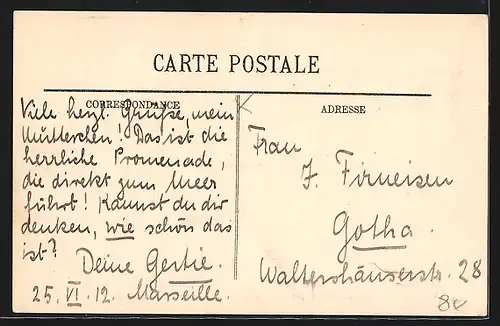 CARTE POSTALE
CORRESPONDANCE
ADRESSE
Viele herzl. Grüße, mein
Mütterchen! Das ist die
herrliche Promenade,
die direkt zum Meer
führt! Kannst du dir
denken, wie schön das
ist?
Deine Gertie.
25. VI. 12. Marseille.
Frau
J. Firneisen
Gotha.
Waltershäuserstr. 28